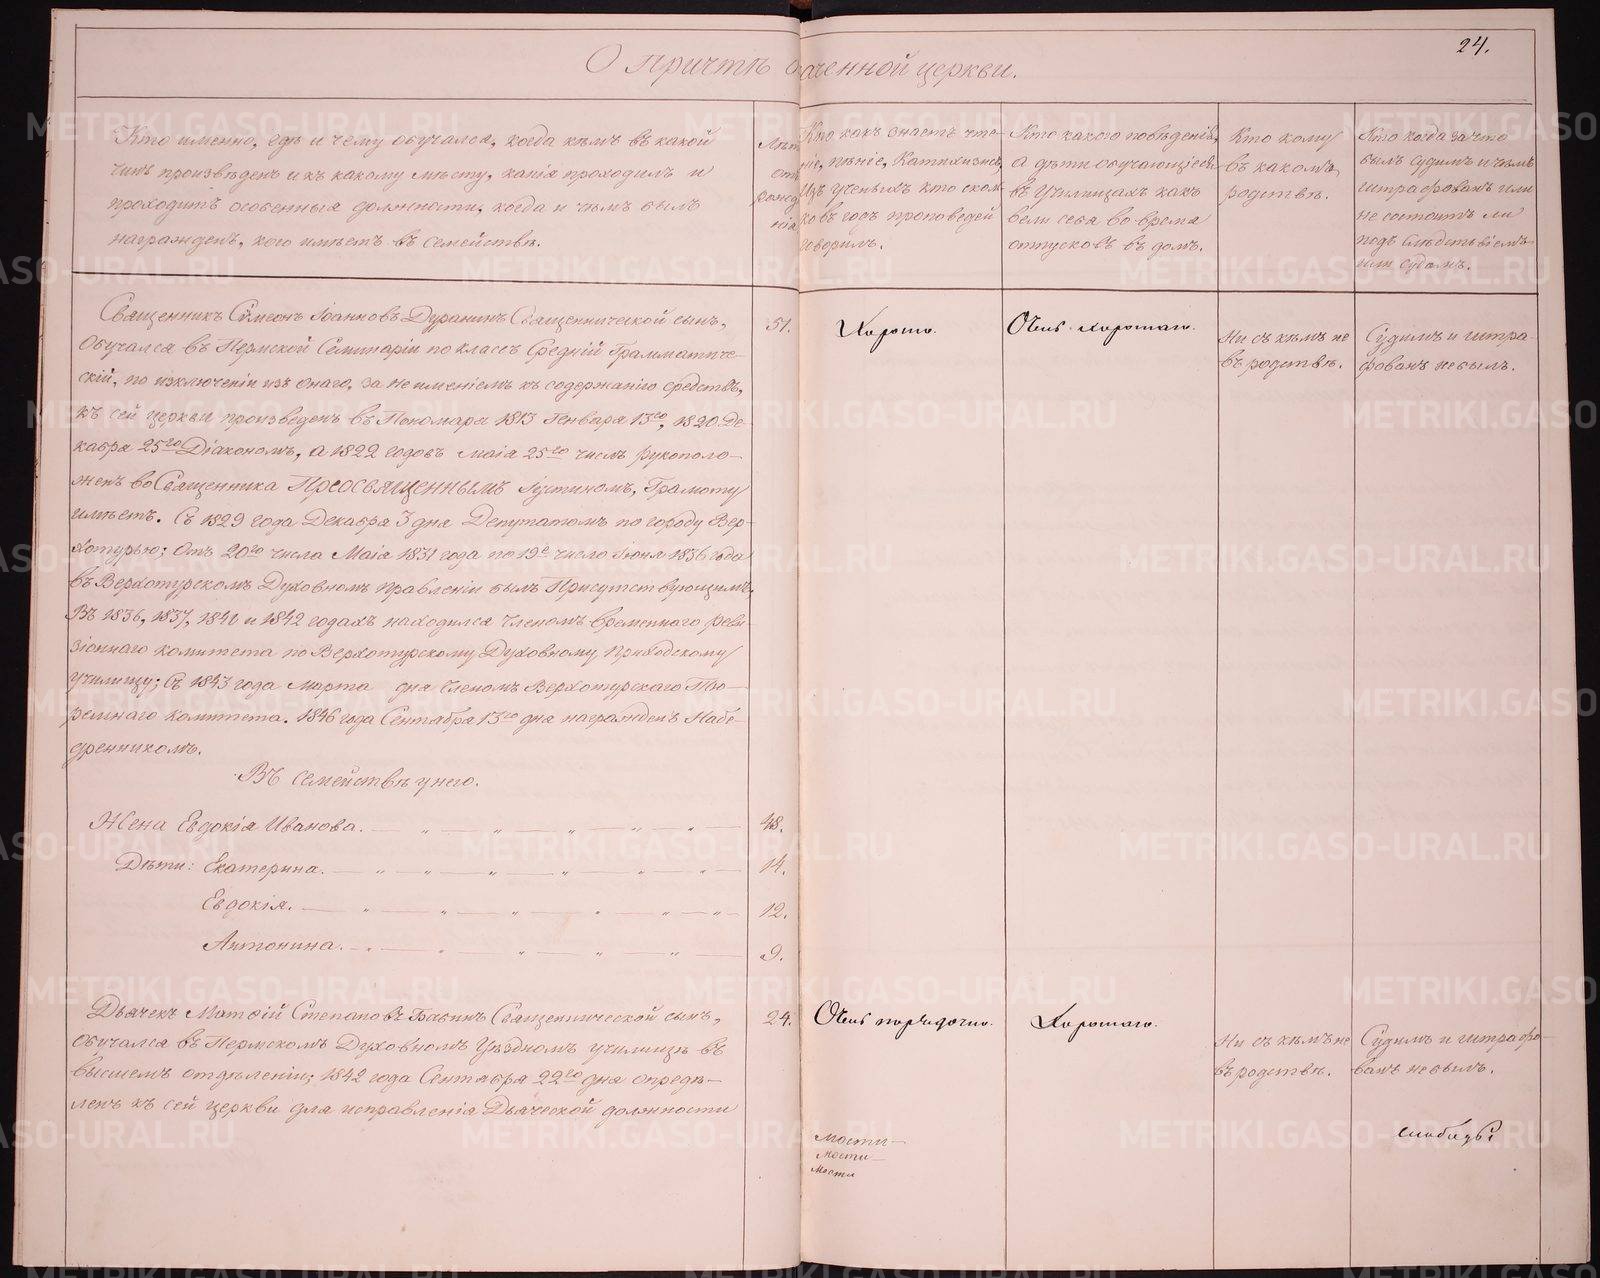 24.
О Причтѣ означенной церкви.
Кто именно, гдѣ и чему обучался, когда кѣмъ въ какой
чинъ произвѣденъ и къ какому мѣсту, какія проходилъ и
проходитъ особенныя должности, когда и чѣмъ былъ
награжденъ, кого имѣетъ въ семействѣ.
Лѣт
отъ
рожд
нія
Кто какъ знаетъ чте-
ніе, пѣніе, Катихизисъ,
Изъ ученыхъ кто сколь-
ко въ годъ проповедей
говорилъ.
Кто какого повѣденія,
а дѣти обучающіеся
въ Училищахъ какъ
вели себя во время
отпусковъ въ домъ.
Кто кому
въ какомъ
родствѣ.
Кто когда за что
былъ судимъ и чѣмъ
штрафованъ или
не состоитъ ли
подъ слѣдствіемъ
или судомъ.
Священникъ Сѵмеонъ Іоанновъ Дуранинъ Священнической сынъ,
Обучался въ Пермской Семинаріи по классъ Средній Грамматиче-
скій, по изключеніи изъ онаго, за неименіемъ къ содержанію средствъ,
къ сей церкви произведенъ въ Пономаря 1813 Генваря 13го, 1820 Де-
кабря 25го Діакономъ, а 1822 годовъ Маія 25го числъ рукополо-
женъ во Священника Преосвященнымъ Іустиномъ, Грамоту
имѣетъ. Съ 1829 года Декабря 3 дня Депутатомъ по городу Вер-
хотурью; Отъ 20го числа Маія 1831 года по 19е число Іюня 1836 года
въ Верхотурскомъ Духовномъ правленіи былъ Присутствующимъ,
Въ 1836, 1837, 1841 и 1842 годахъ находился членомъ временнаго реви-
зіоннаго комитета по Верхотурскому Духовному Приходскому
училищу; Съ 1843 года Марта дня членомъ Верхотурскаго Тю-
ремнаго комитета. 1846 года Сентября 13го дня награжденъ Набе-
дренникомъ.
51.
Хорошо.
Очень хорошаго.
Ни съ кѣмъ не
въ родствѣ.
Судимъ и штра-
фованъ небылъ.
Въ семействѣ у него.
Жена Евдокія Иванова. 48.
Дѣти: Екатерина. 14.
Евдокія. 12.
Антонина. 9.
Дьячекъ Матѳій Степановъ Бабинъ Священнической сынъ,
Обучался въ Пермскомъ Духовномъ Уѣздномъ училищѣ въ
высшемъ отдѣленіи; 1842 года Сентября 22го дня опредѣ-
ленъ къ сей церкви для исправленія Дьяческой должности
24.
Очень порядочно.
Хорошаго.
Ни съ кѣмъ не
въ родствѣ.
Судимъ и штрафо-
ванъ небылъ.
мости-
мости-
мости
слободы